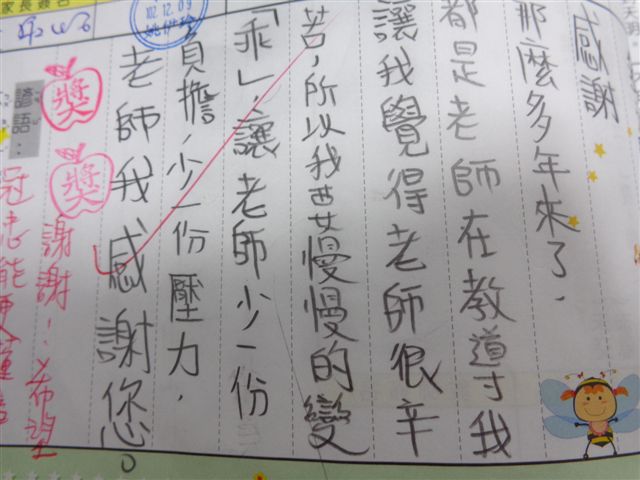 感謝
那麼多年來了.
都是老師在教導我
讓我覺得老師很辛
苦,所以我要慢慢的變
「乖」,讓老師少一份
負擔,少一份壓力.
老師我感謝您。
謝謝!希望
獎
獎
諺語:
家長簽名
02.12.09